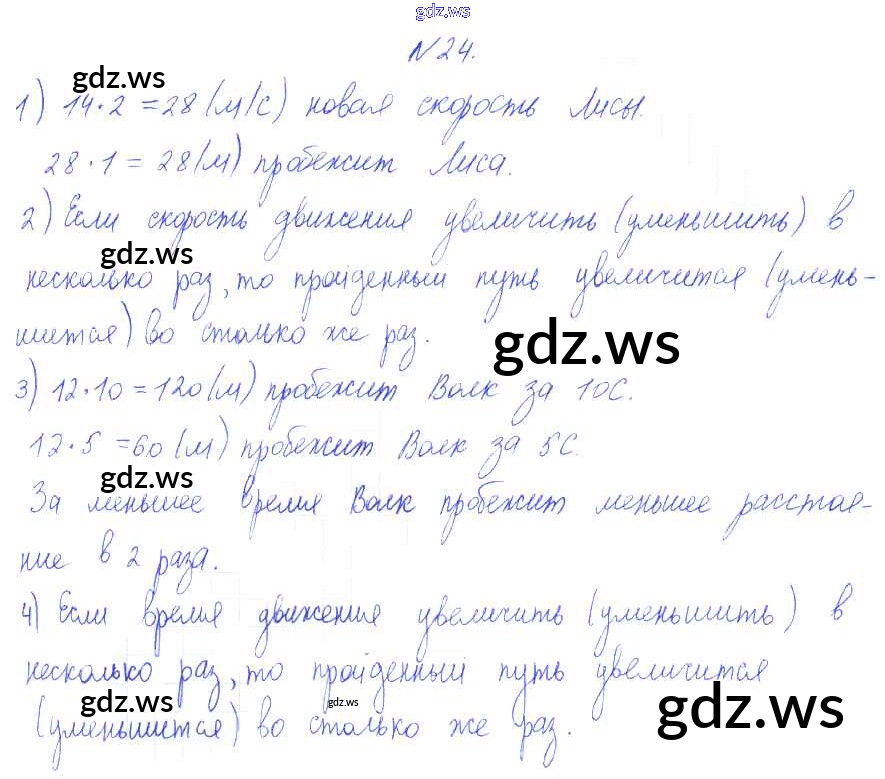 gdz.ws
№24.
gdz.ws
1) 14·2=28(м/с) новая скорость Лисы.
28·1=28(м) пробежит Лиса.
2) Если скорость движения увеличить (уменьшить) в
gdz.ws
несколько раз, то пройденный путь увеличится (умень-
шится) во столько же раз.
gdz.ws
3) 12·10=120(м) пробежит Волк за 10с.
12·5=60(м) пробежит Волк за 5с.
gdz.ws
За меньшее время Волк пробежит меньшее расстоя-
ние в 2 раза.
4) Если время движения увеличить (уменьшить) в
несколько раз, то пройденный путь увеличится
gdz.ws gdz.ws gdz.ws
(уменьшится) во столько же раз.